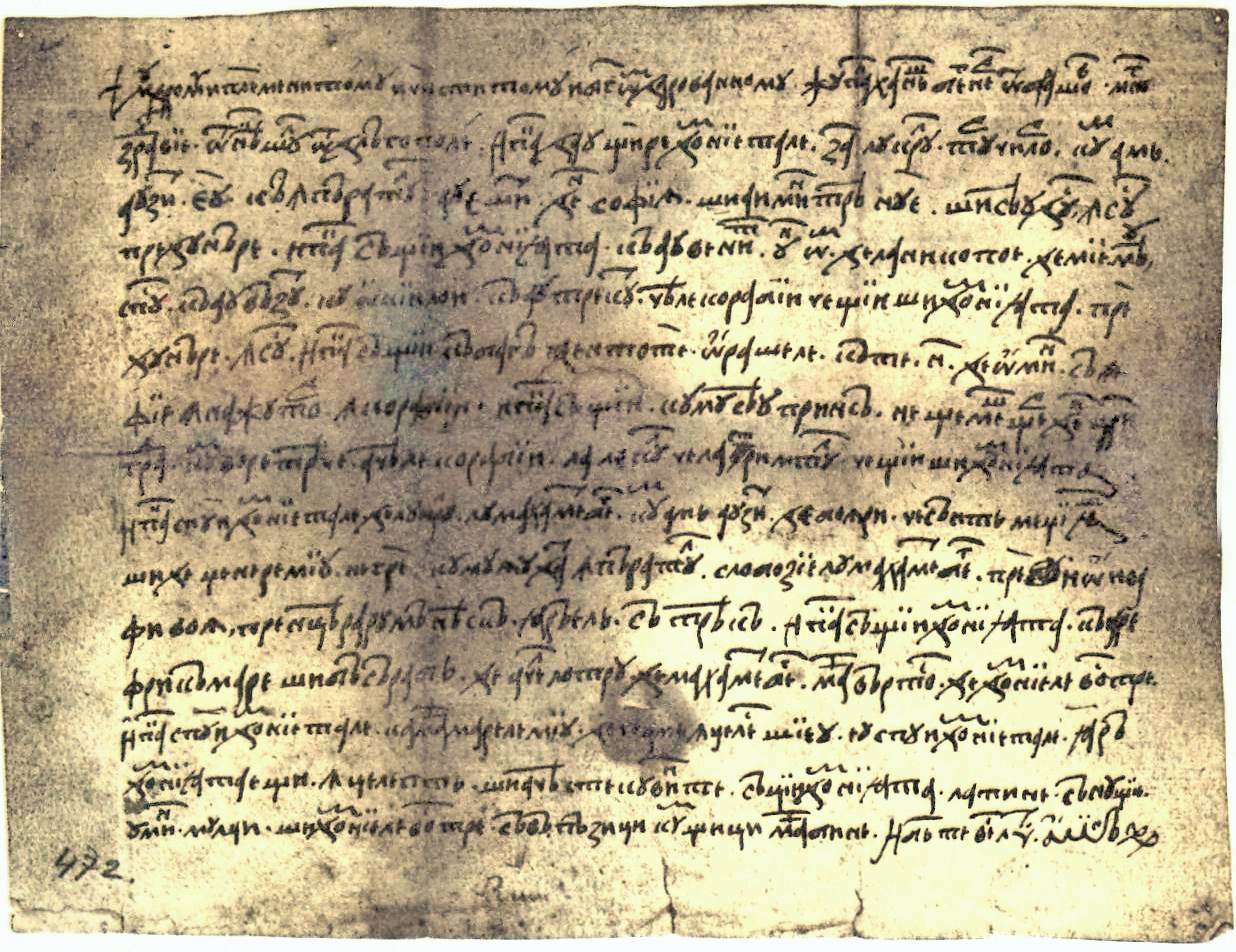 Мѹдромѹ и племенитомѹ и чистито́мѹ и б҃гѡⷨ дарованномѹ жѹпа҃н ханⷲъ бенⷢне ѿ брашоⷡ мн҃о
здра҃вїе ѿ нѣкшꙋⷧ ѿ длъгополе · и па҃к даꙋ щире доⷨнїетале · за лꙋкрꙋⷧ тꙋрчилоⷬ кꙋⷨ амь
аѹзиⷮ еꙋ къ ꙟпъратꙋⷧ аꙋ ешиⷮ деⷩ софїѧ · ши аимиⷩтрѣ нꙋе · ши се аꙋ дꙋⷭ ꙟ сꙋⷭ
пре дꙋнъре · и па҃к съ щїи доⷨнїꙗта къ аꙋ вениⷮ ꙋⷩ ѡⷨ де ла никопое де мїе мѣꙋ
спꙋⷭ къ аꙋ възꙋⷮ кꙋ ѡкїи лои къ аꙋ трекꙋⷮ чѣле корабїи че щїи ши доⷨнїꙗта · пре
дꙋнъре ꙟ сꙋⷭ · и па҃к съ щїи къ багъ деⷩ тоте ѡрашеле къте н҃ де ѡмиⷩ съ
фїе ꙟ ажꙋтоⷬ ꙟ корабїи · и па҃к съ щїи кꙋмꙋ се аꙋ принсь неще мещеⷬ деⷩ цари
граⷣ кꙋⷨ ворь трѣче ачѣле корабїи ла локꙋⷧ чела стримтꙋⷧ че щїи ши доⷨнїꙗта
и па҃к спꙋи доⷨнїе тале де лꙋкрꙋⷧ лꙋ махамеⷮ беⷢ кꙋⷨ амь аꙋзиⷮ де боꙗри че сънть меџїꙗⷲ
ши де џенере мїꙋ негре кꙋмꙋ ꙗꙋ даⷮ ꙟпъратꙋⷧ слобозїе лꙋ махамеⷮ беⷢ пре ио и ва
фи воꙗ прен цѣра рꙋмънѣскъ ꙗръ ель съ трѣкъ · и па҃к съ щїи доⷨнїꙗта къ аре
фрикъ маре ши бъсърабь де ачеⷧ лотрꙋ де махамеⷮ беⷢ маи върътоⷭ де доⷨнїеле востре
и па҃к спꙋи доⷨнїетале ка маи мареле мїꙋ де че амь ꙟцелеⷭ шїеꙋ еꙋ спꙋи доⷨнїетале ꙗръ
доⷨнїꙗта ещи ꙟцелепть ши ачѣсте кꙋвинте съ цїи доⷨнїꙗта ла тине съ нꙋ щїе
ꙋмиⷩ мꙋлци ши доⷨнїеле востре съ въ пъзици кꙋⷨ щици маи бине и б҃ь те веⷭлиⷮ аминь
472.